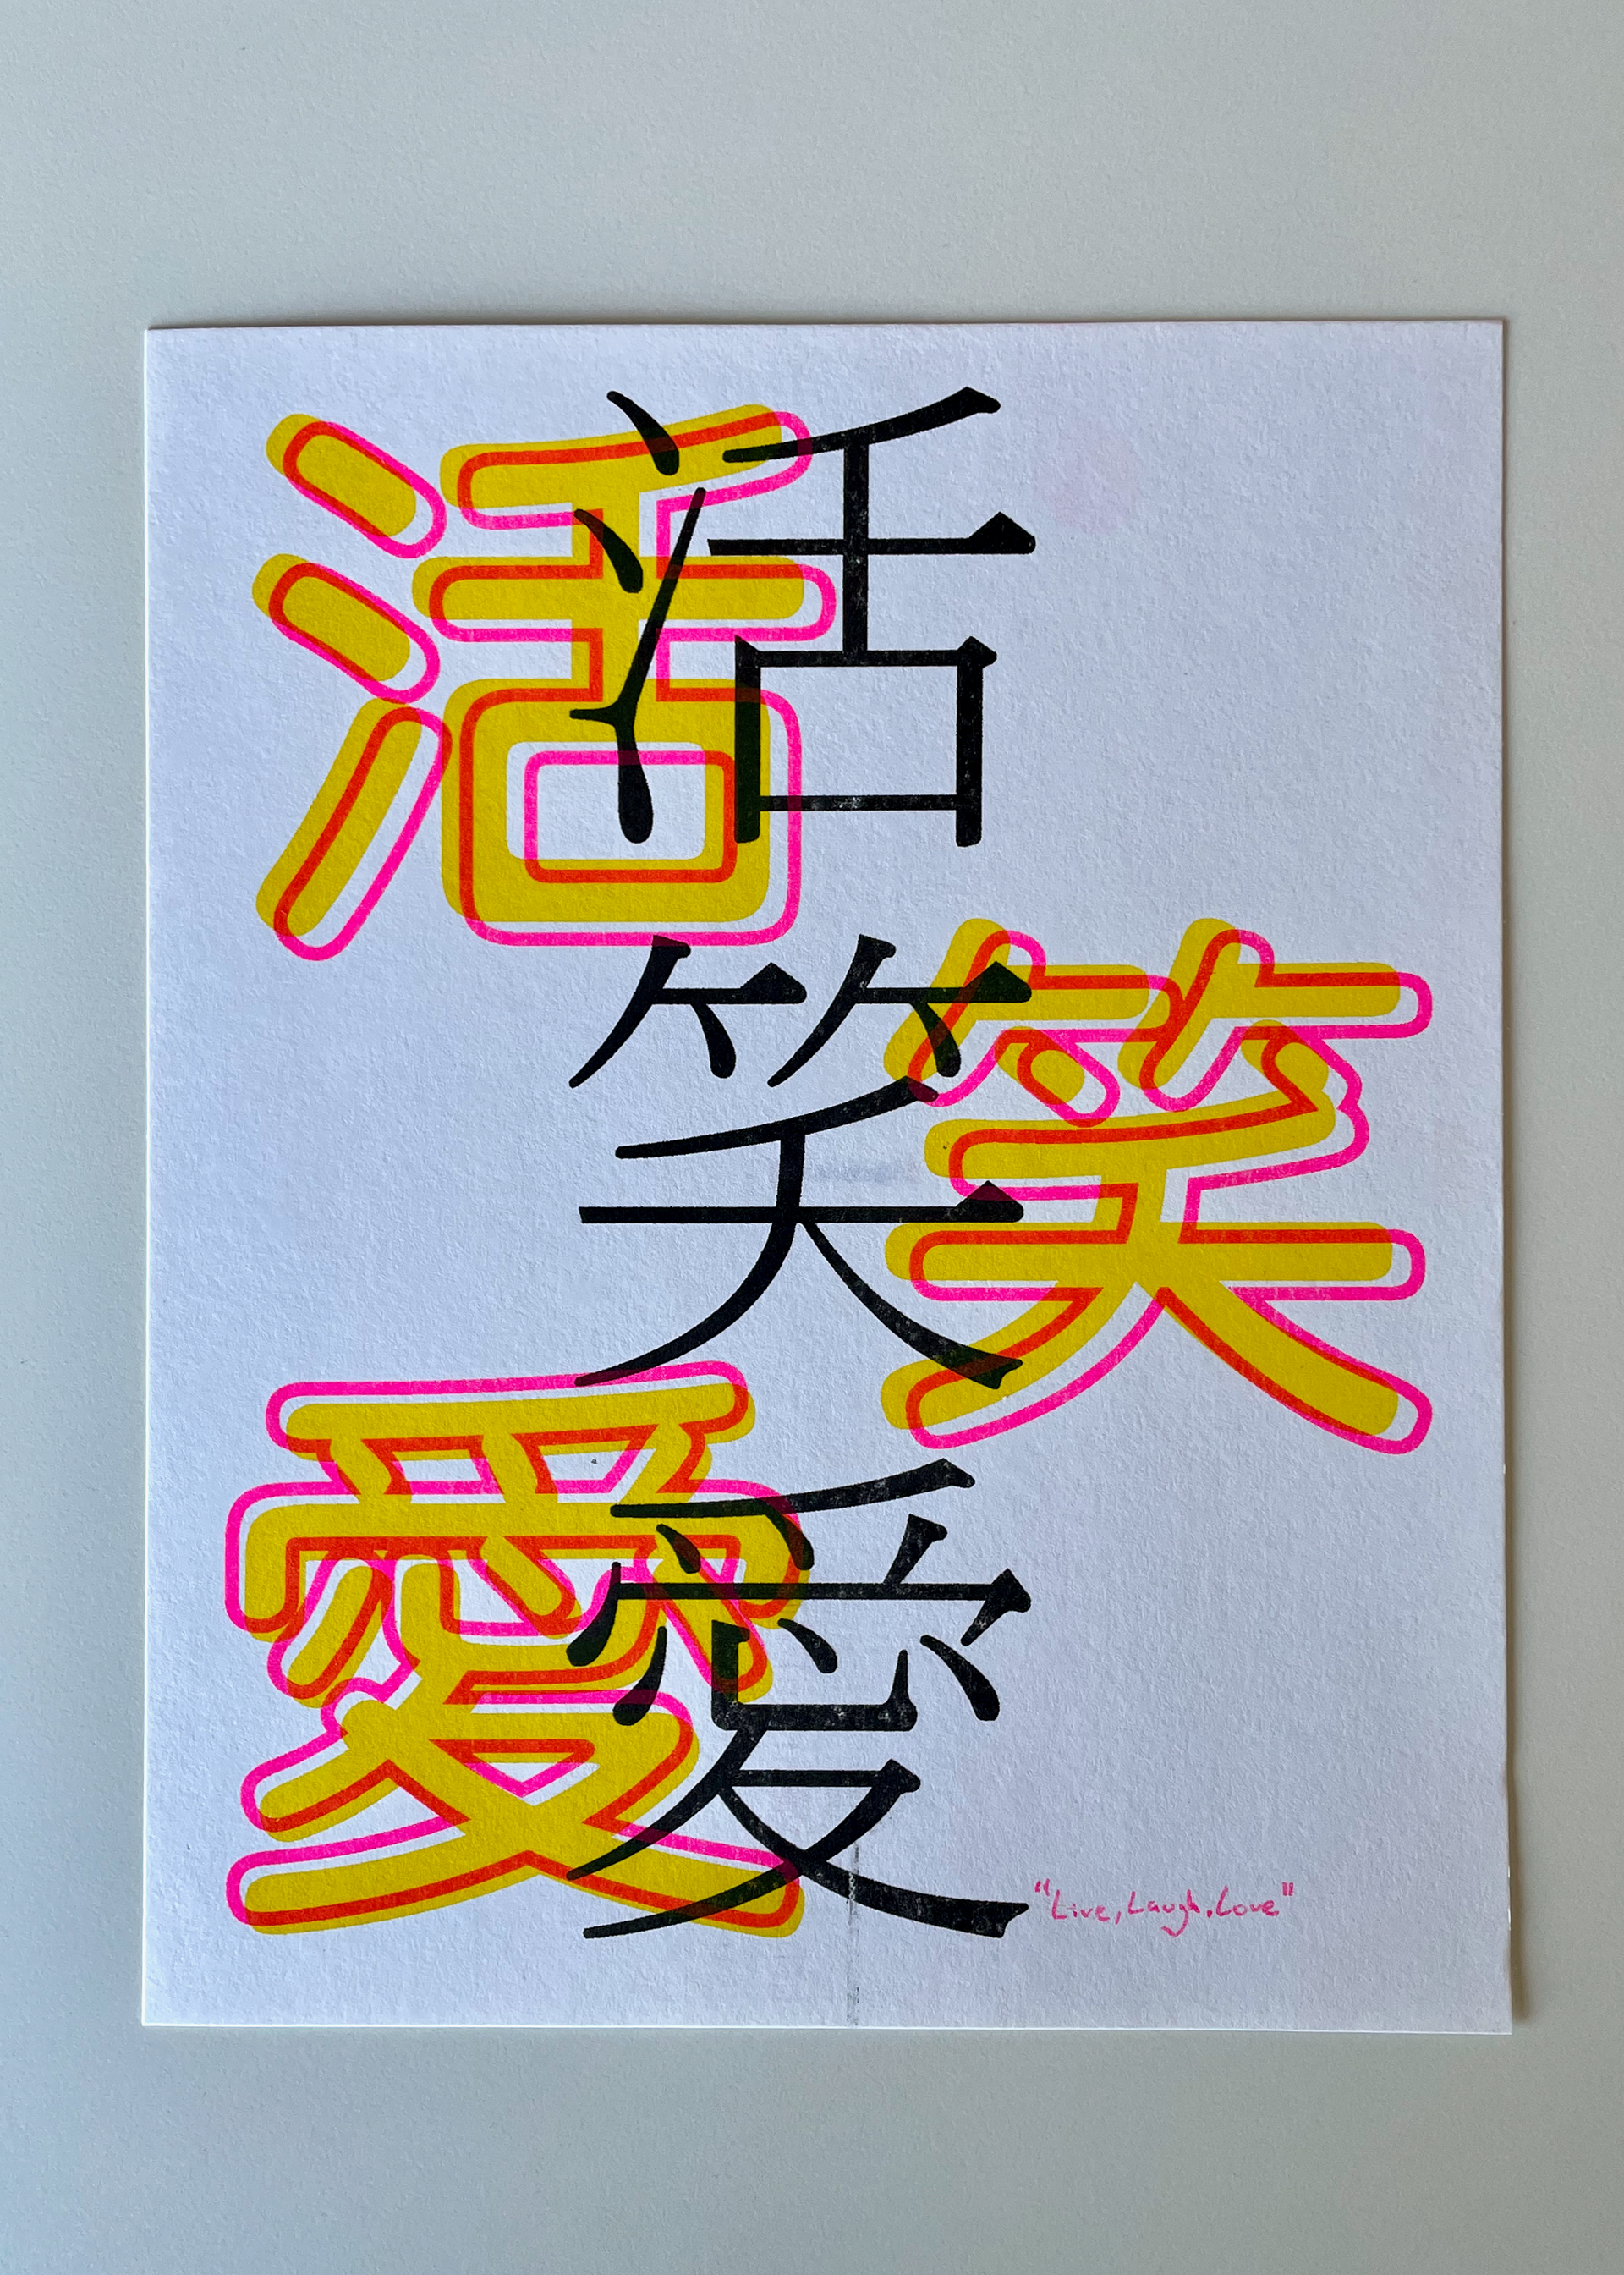 活活
笑笑
愛愛
"Live, Laugh, Love"